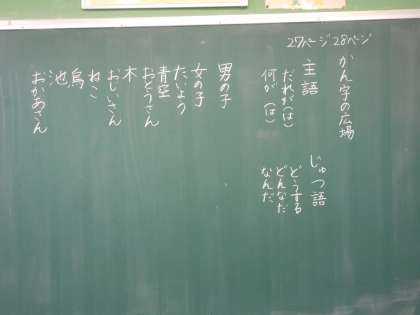 27ページ 28ページ
かん字の広場
主語 じゅつ語
だれが(は) どうする
何が(は) どんなだ
なんだ
男の子
女の子
たいよう
青空
おとうさん
木
おじいさん
ねこ
鳥
池
おかあさん